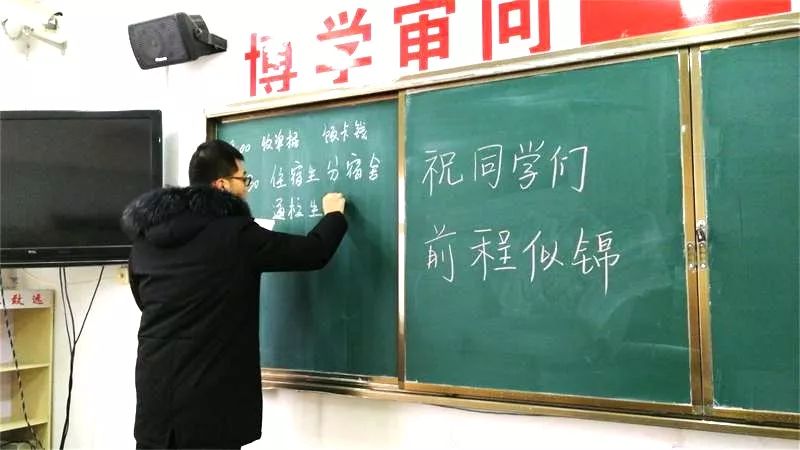 博学审问
00 收单据 饭卡钱
00 住宿生分宿舍
通校生
祝同学们
前程似锦
致远